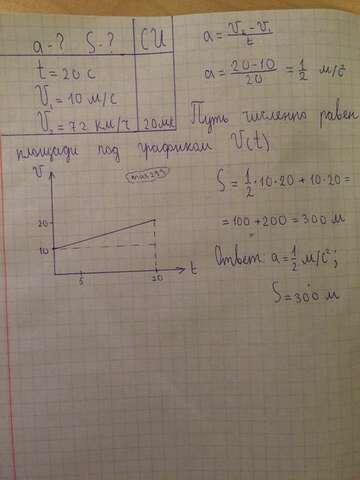 a-? S-? СИ
t = 20 с
V₁ = 10 м/с
V₂ = 72 км/ч 20 м/с
a = (V₂ - V₁)/t
a = (20-10)/20 = 1/2 м/с²
Путь численно равен
площади под графиком V(t)
V
20
10
5
20
t
S = 1/2·10·20 + 10·20 =
= 100 + 200 = 300 м
Ответ: a = 1/2 м/с²;
S = 300 м